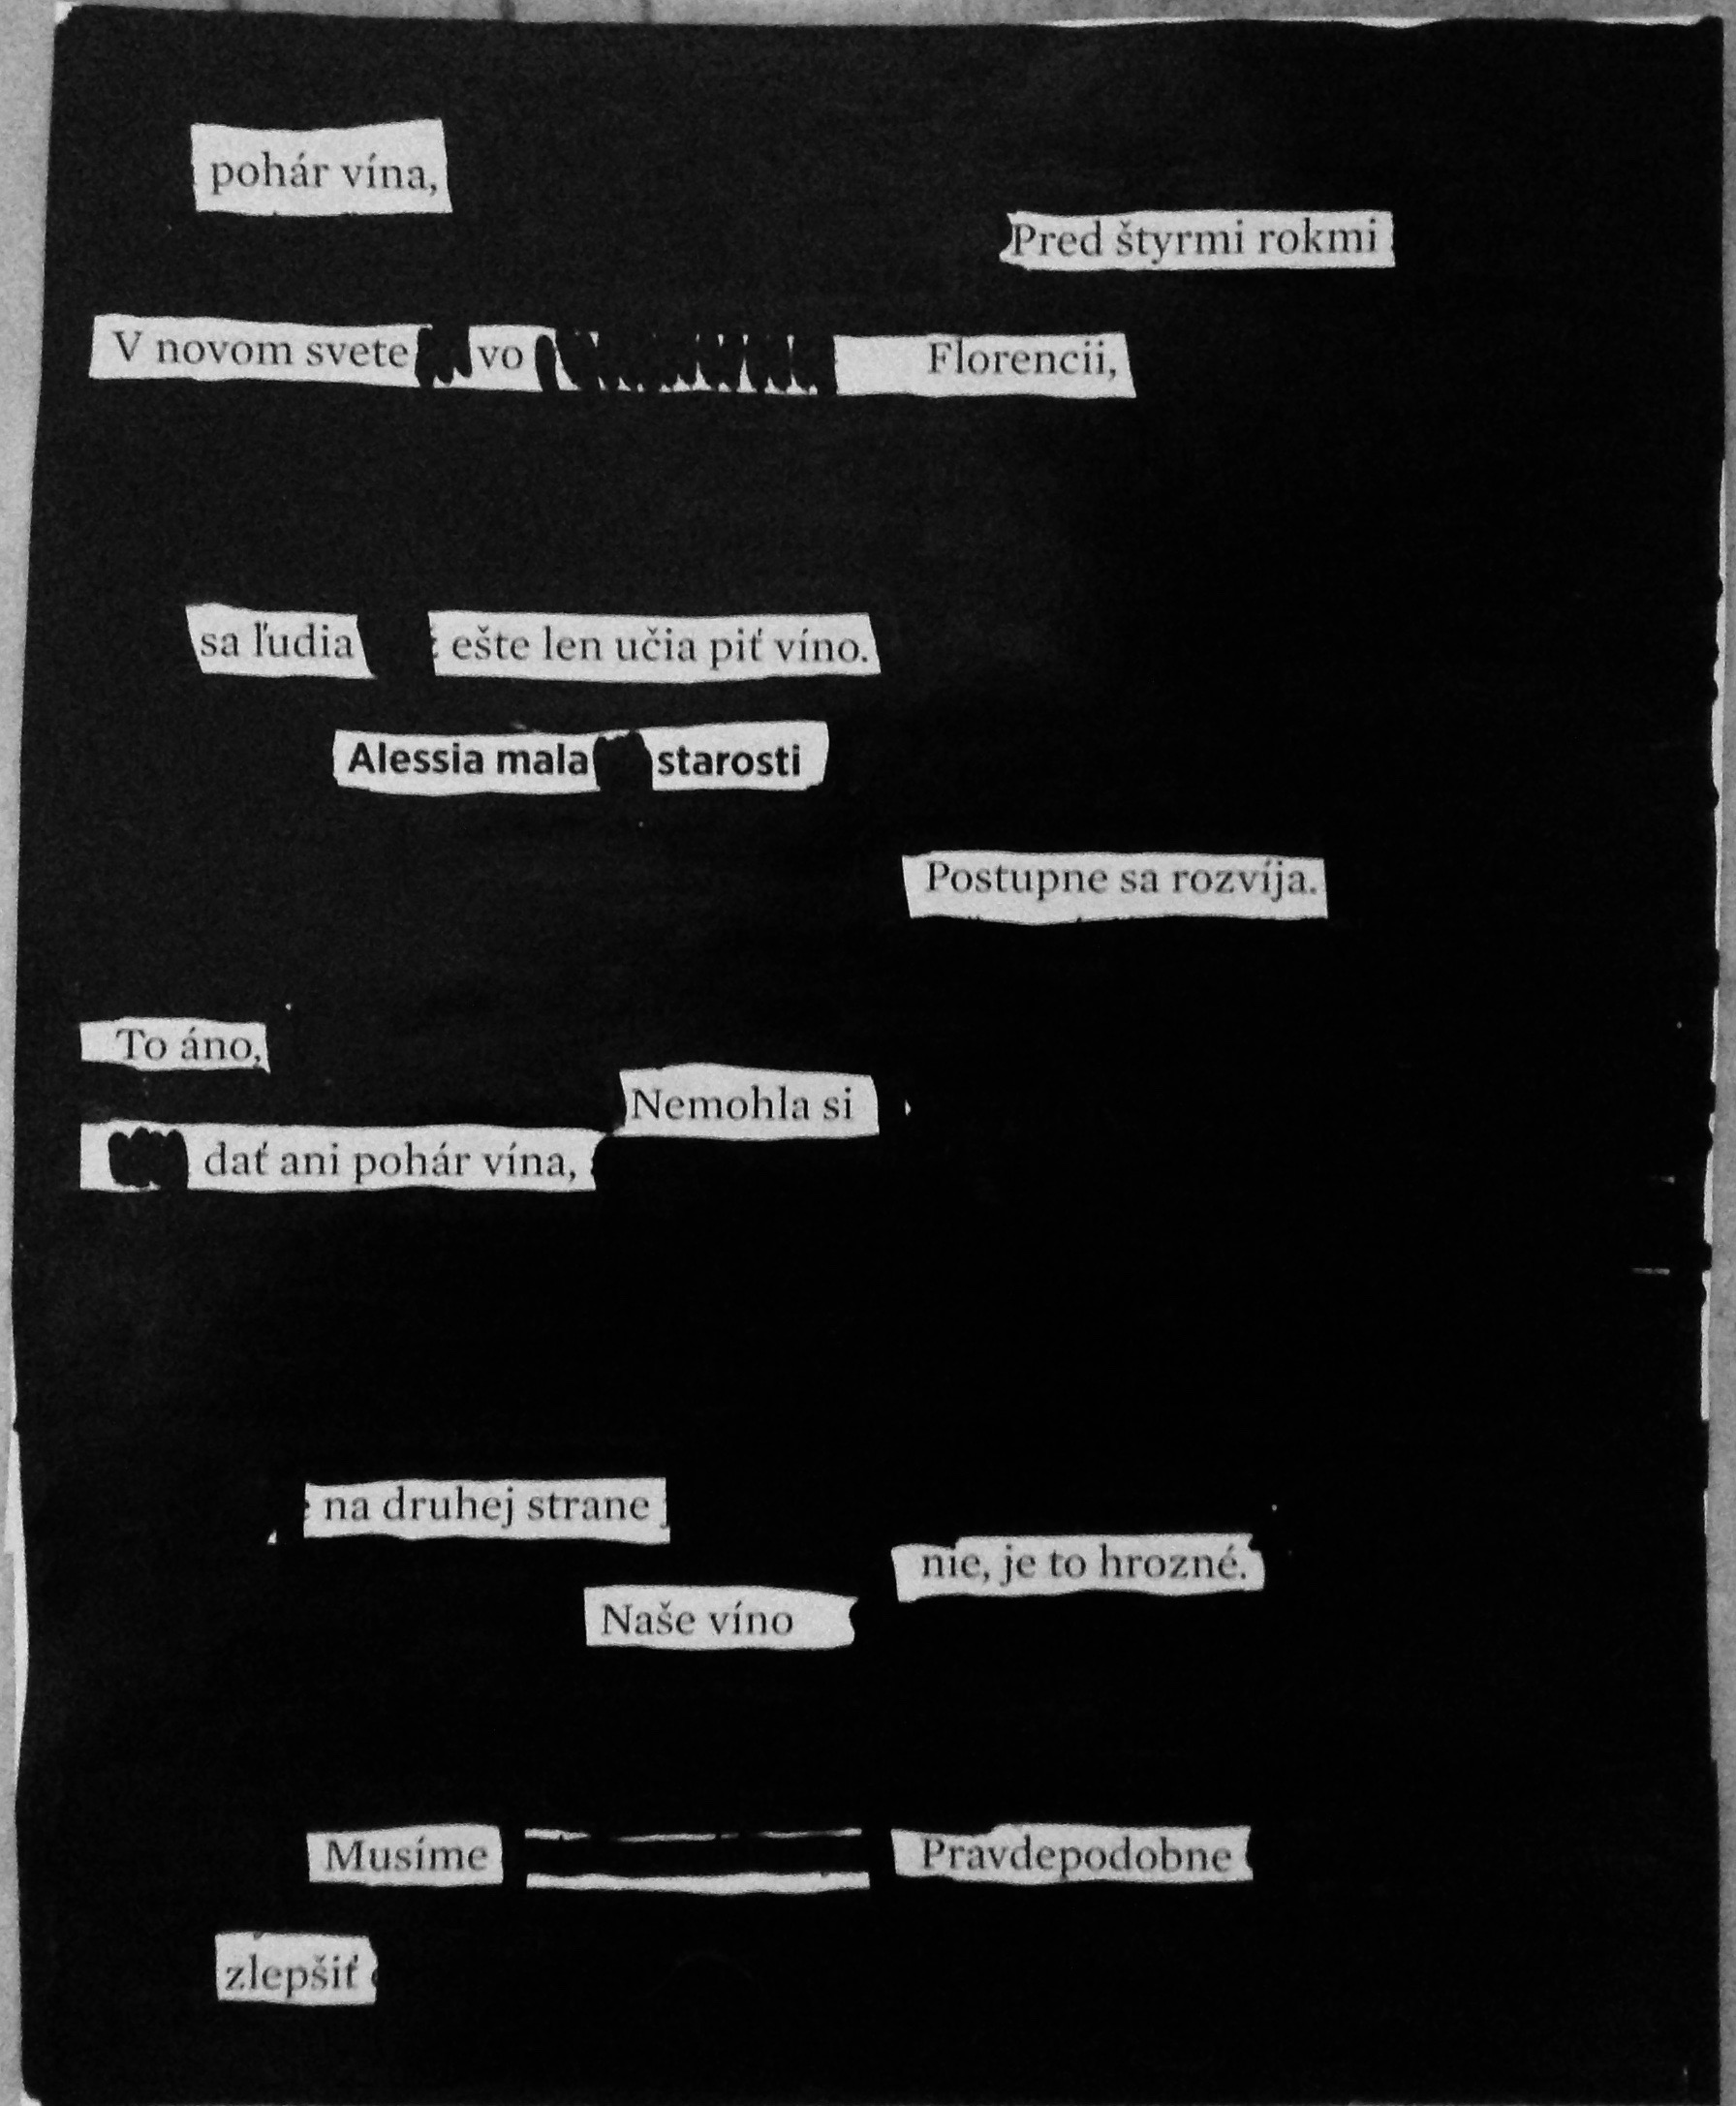 pohár vína,
Pred štyrmi rokmi
V novom svete vo Florencii,
sa ľudia ešte len učia piť víno.
Alessia mala starosti
Postupne sa rozvíja.
To áno,
Nemohla si
dať ani pohár vína,
na druhej strane
nie, je to hrozné.
Naše víno
Musíme Pravdepodobne
zlepšiť